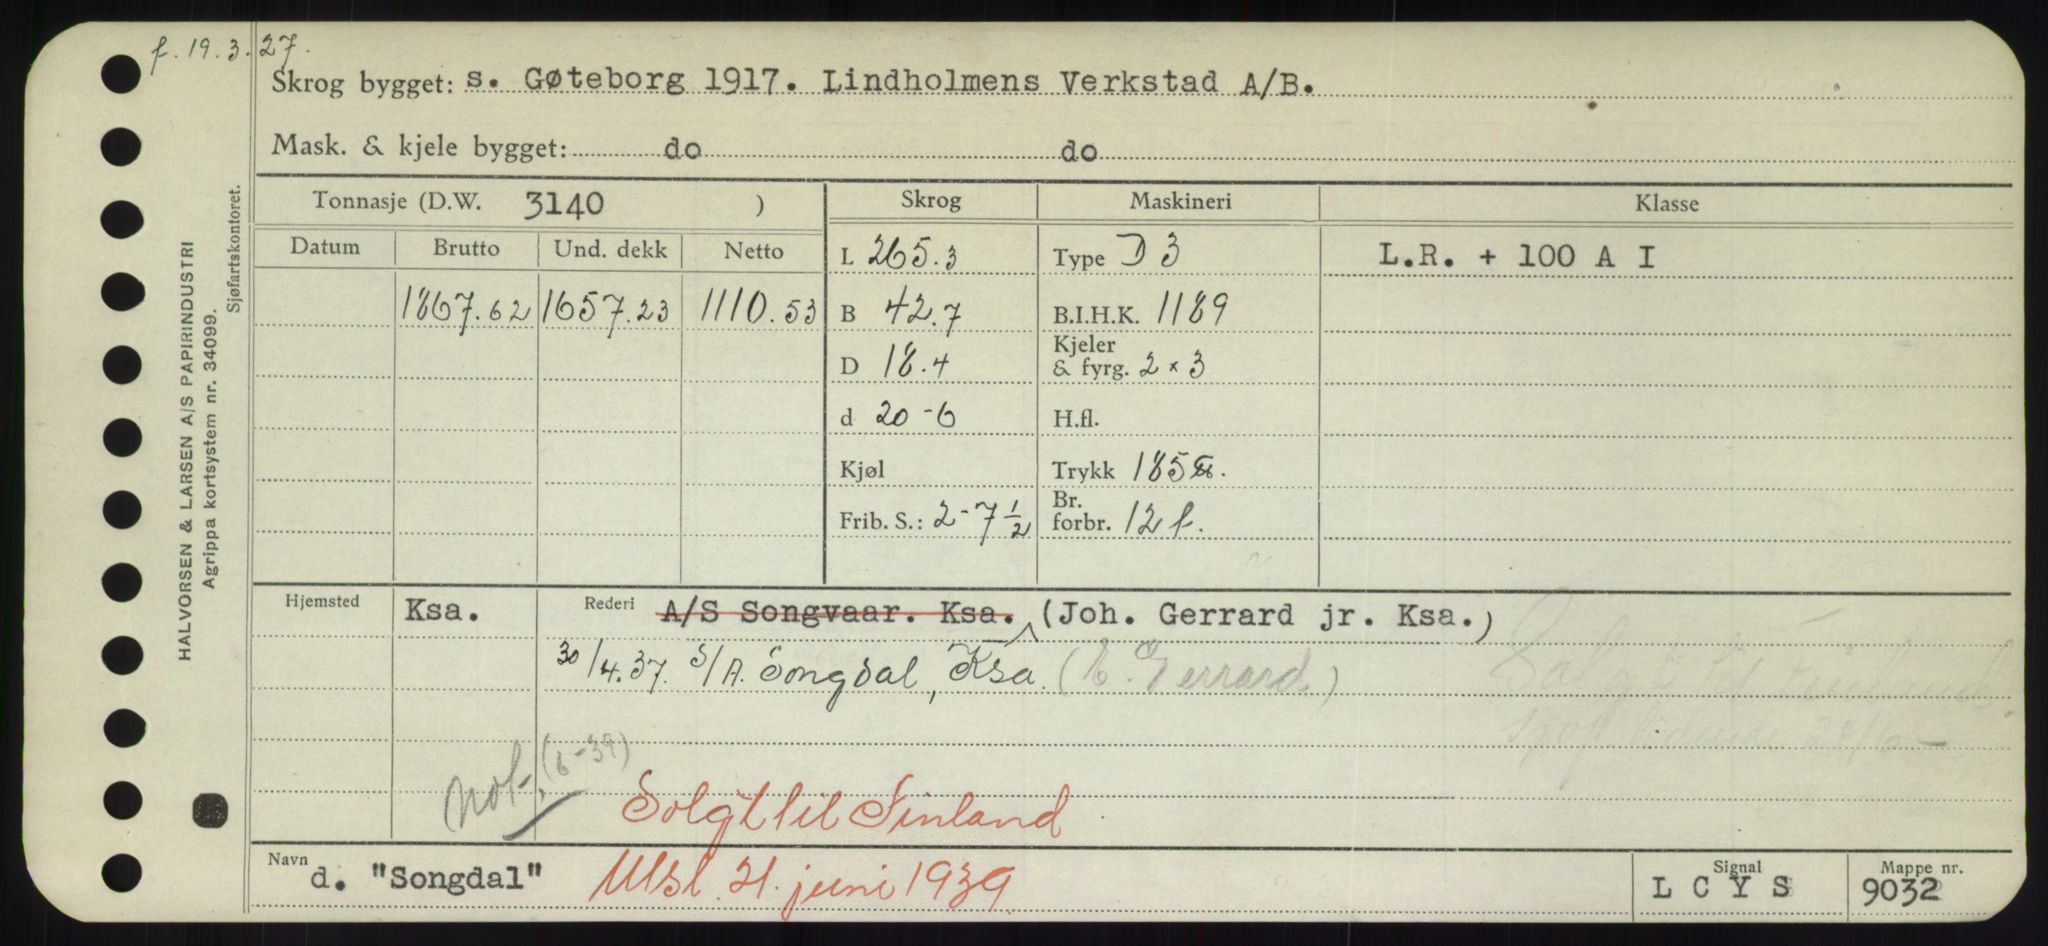 f. 19.3.27.
Skrog bygget: s. Gøteborg 1917. Lindholmens Verkstad A/B.
Mask. & kjele bygget: do do
Tonnasje (D.W. 3140 ) Skrog Maskineri Klasse
Datum Brutto Und. dekk Netto L 265.3 Type D 3 L.R. + 100 A I
1867.62 1657.23 1110.53 B 42.7 B.I.H.K. 1189
D 18.4 Kjeler & fyrg. 2 × 3
d 20-6 H.fl.
Kjøl Trykk 185
Frib. S.: 2-7 1/2 Br. forbr. 12 f.
Hjemsted Ksa. Rederi A/S Songvaar. Ksa. (Joh. Gerrard jr. Ksa.)
30/4.37. S/A. Songdal, Ksa. (E. Gerrard.)
Solgt til Finland
not. (6-39)
Solgt til Finland
Navn d. "Songdal" Utsl. 21. juni 1939 Signal L C Y S Mappe nr. 9032
HALVORSEN & LARSEN A/S PAPIRINDUSTRI
Agrippa kortsystem nr. 34099.
Sjøfartskontoret.